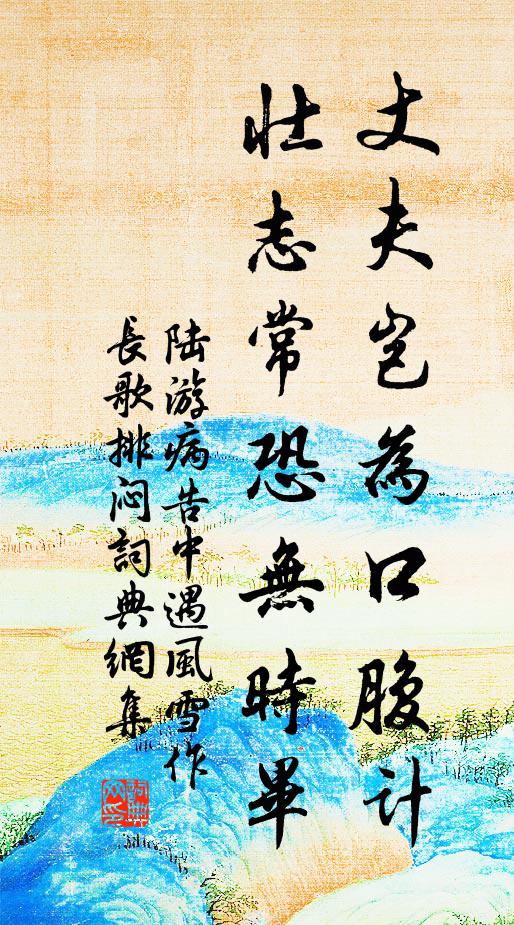 丈夫岂為口腹計
壮志常恐無時畢
陆游病告中遇風雪作
長歌排闷詞典網集